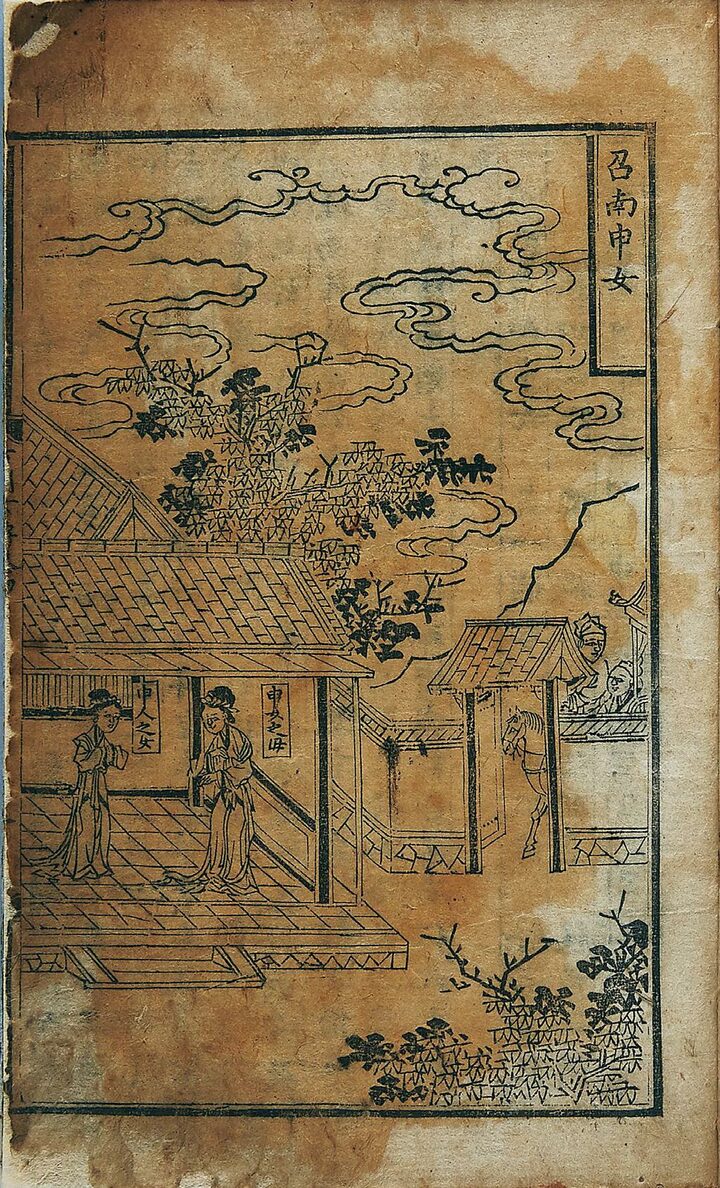 召南申女
申女之母
申人之女